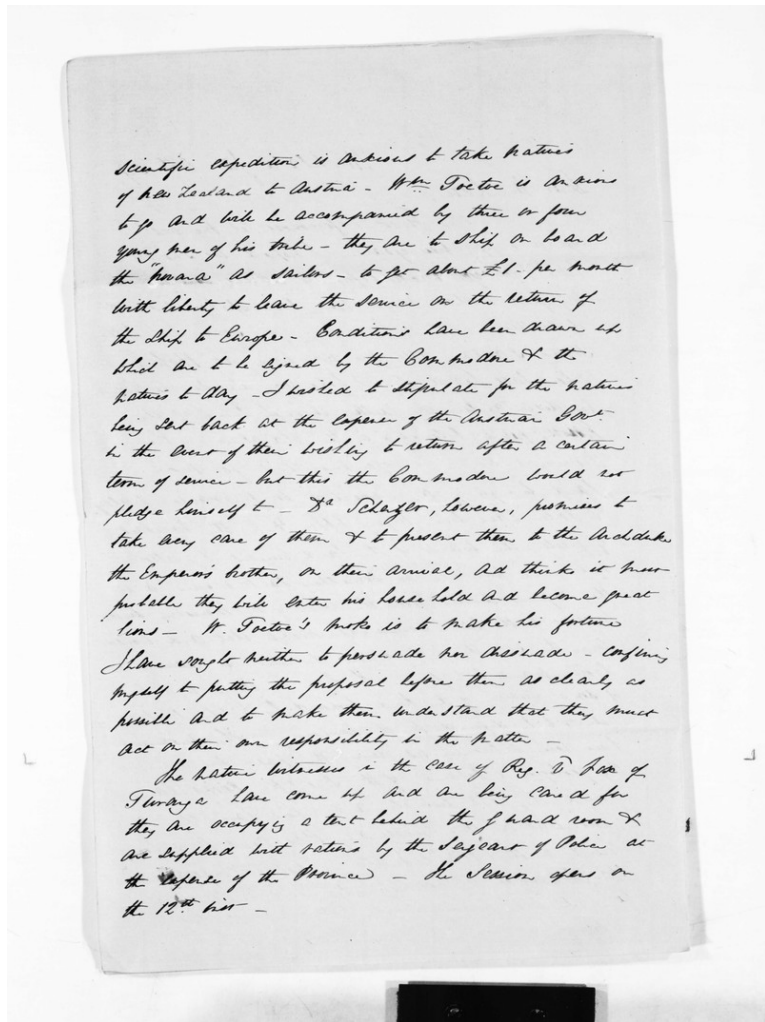 scientific expedition is anxious to take natives
of New Zealand to Austria - Wm Toetoe is anxious
to go and will be accompanied by three or four
young men of his tribe - they are to ship on board
the "Novara" as sailors - to get about £1 - per month
with liberty to leave the service on the return of
the ship to Europe - Conditions have been drawn up
which are to be signed by the Commodore & the
natives to day - I wished to stipulate for the natives
being sent back at the expense of the Austrian Govt
in the event of their wishing to return after a certain
term of service - but this the Commodore would not
pledge himself to - Dr Scherzer, however, promises to
take every care of them & to present them to the Archduke
the Emperor's brother, on their arrival, and thinks it most
probable they will enter his household and become great
lions - W. Toetoe's moko is to make his fortune
I have sought neither to persuade nor dissuade - confining
myself to putting the proposal before them as clearly as
possible and to make them understand that they must
act on their own responsibility in the matter -
The native witnesses in the case of Reg. v Fox of
Turanga have come up and are being cared for
they are occupying a tent behind the Guard room &
are supplied with rations by the Serjeant of Police at
the expense of the Province - The Session opens on
the 12th inst -